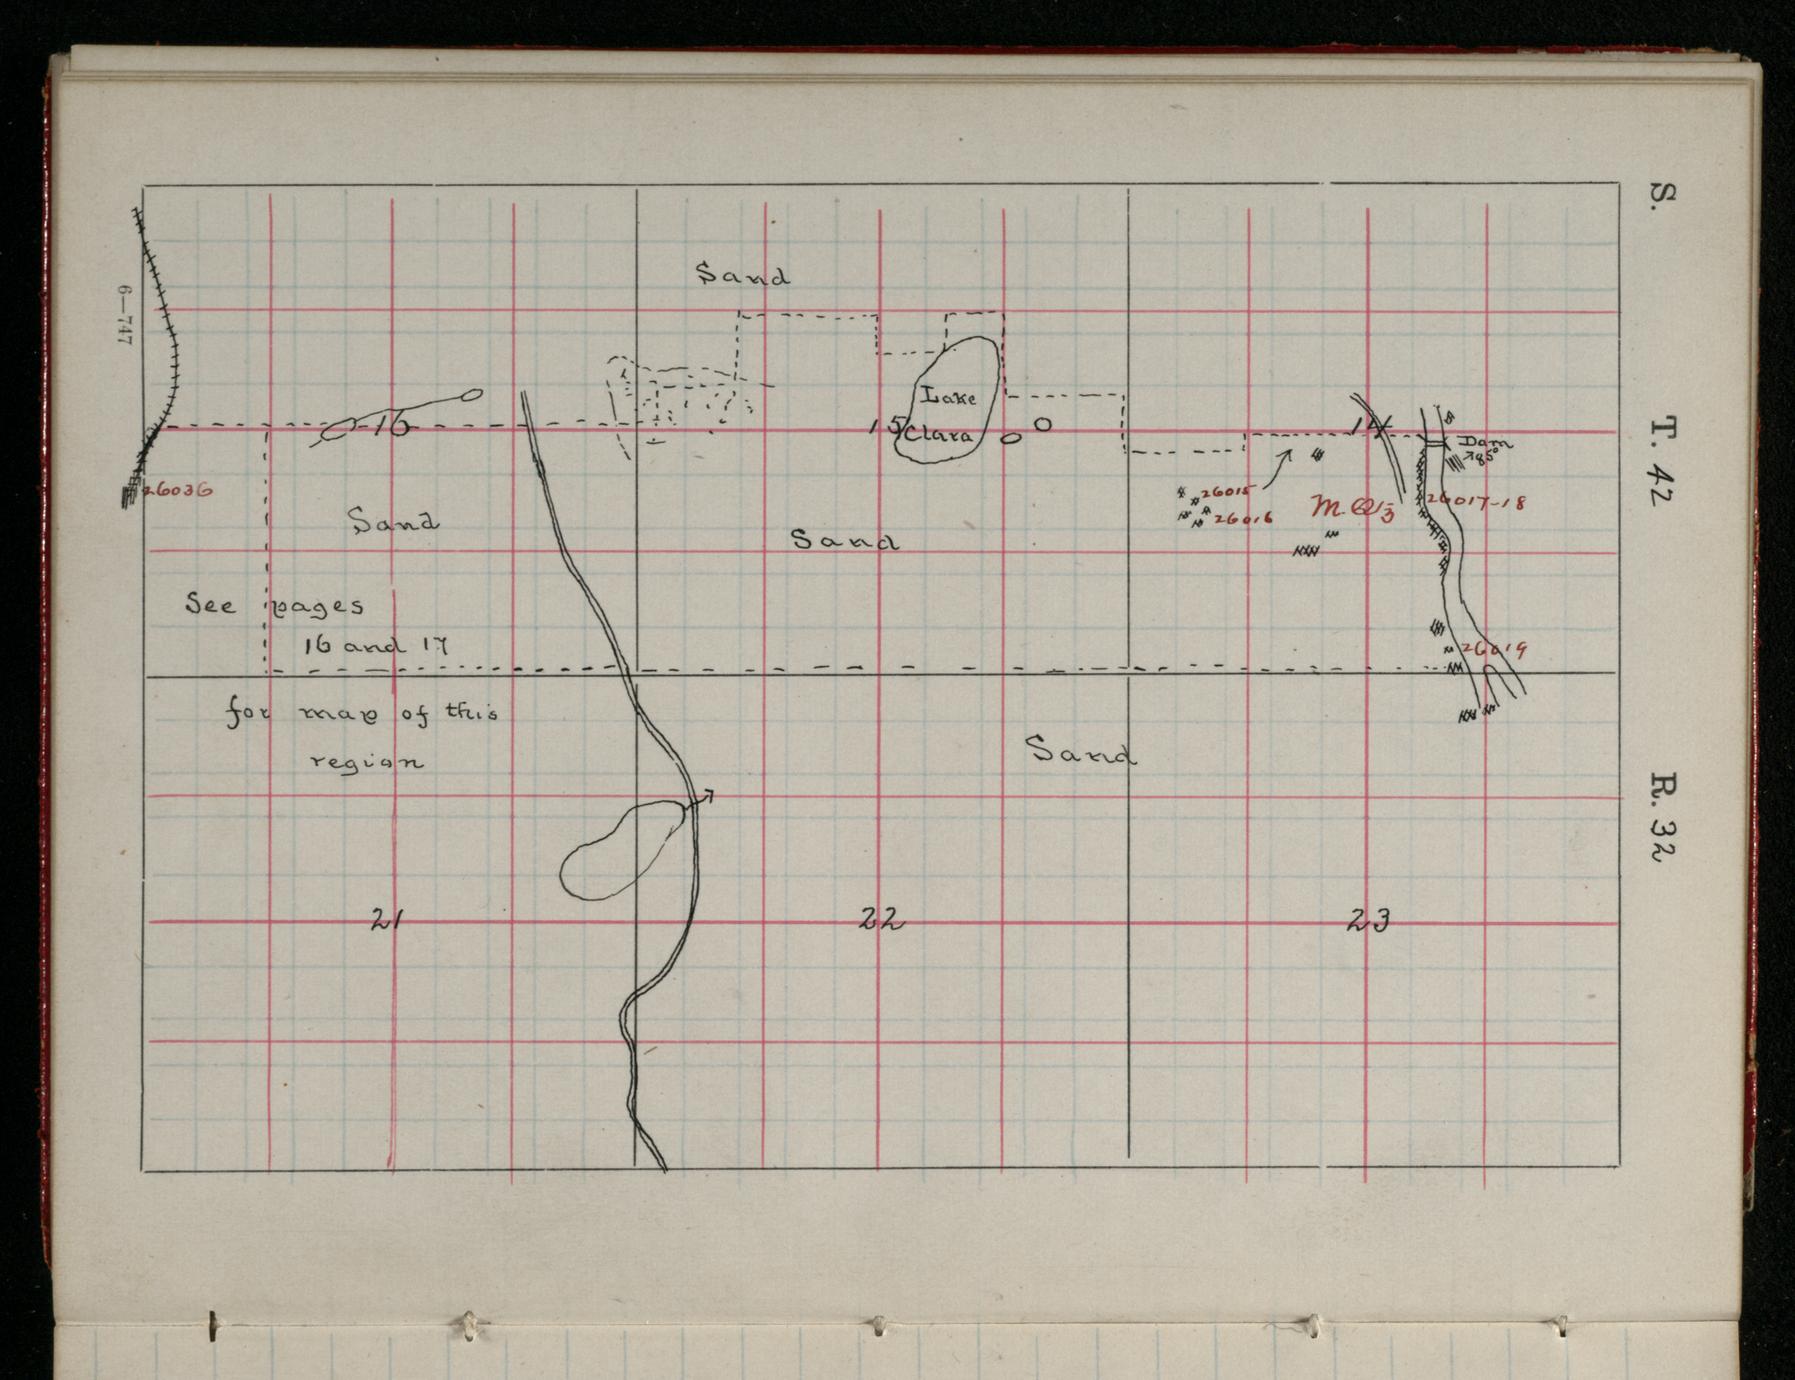 S. T. 42 R. 32
6—747
Sand
Lake
Clara
16
15
14
Dam
85°
26036
26015
26016
M. Q 1/3
26017-18
Sand
Sand
See pages
16 and 17
26019
for map of this
region
Sand
21
22
23